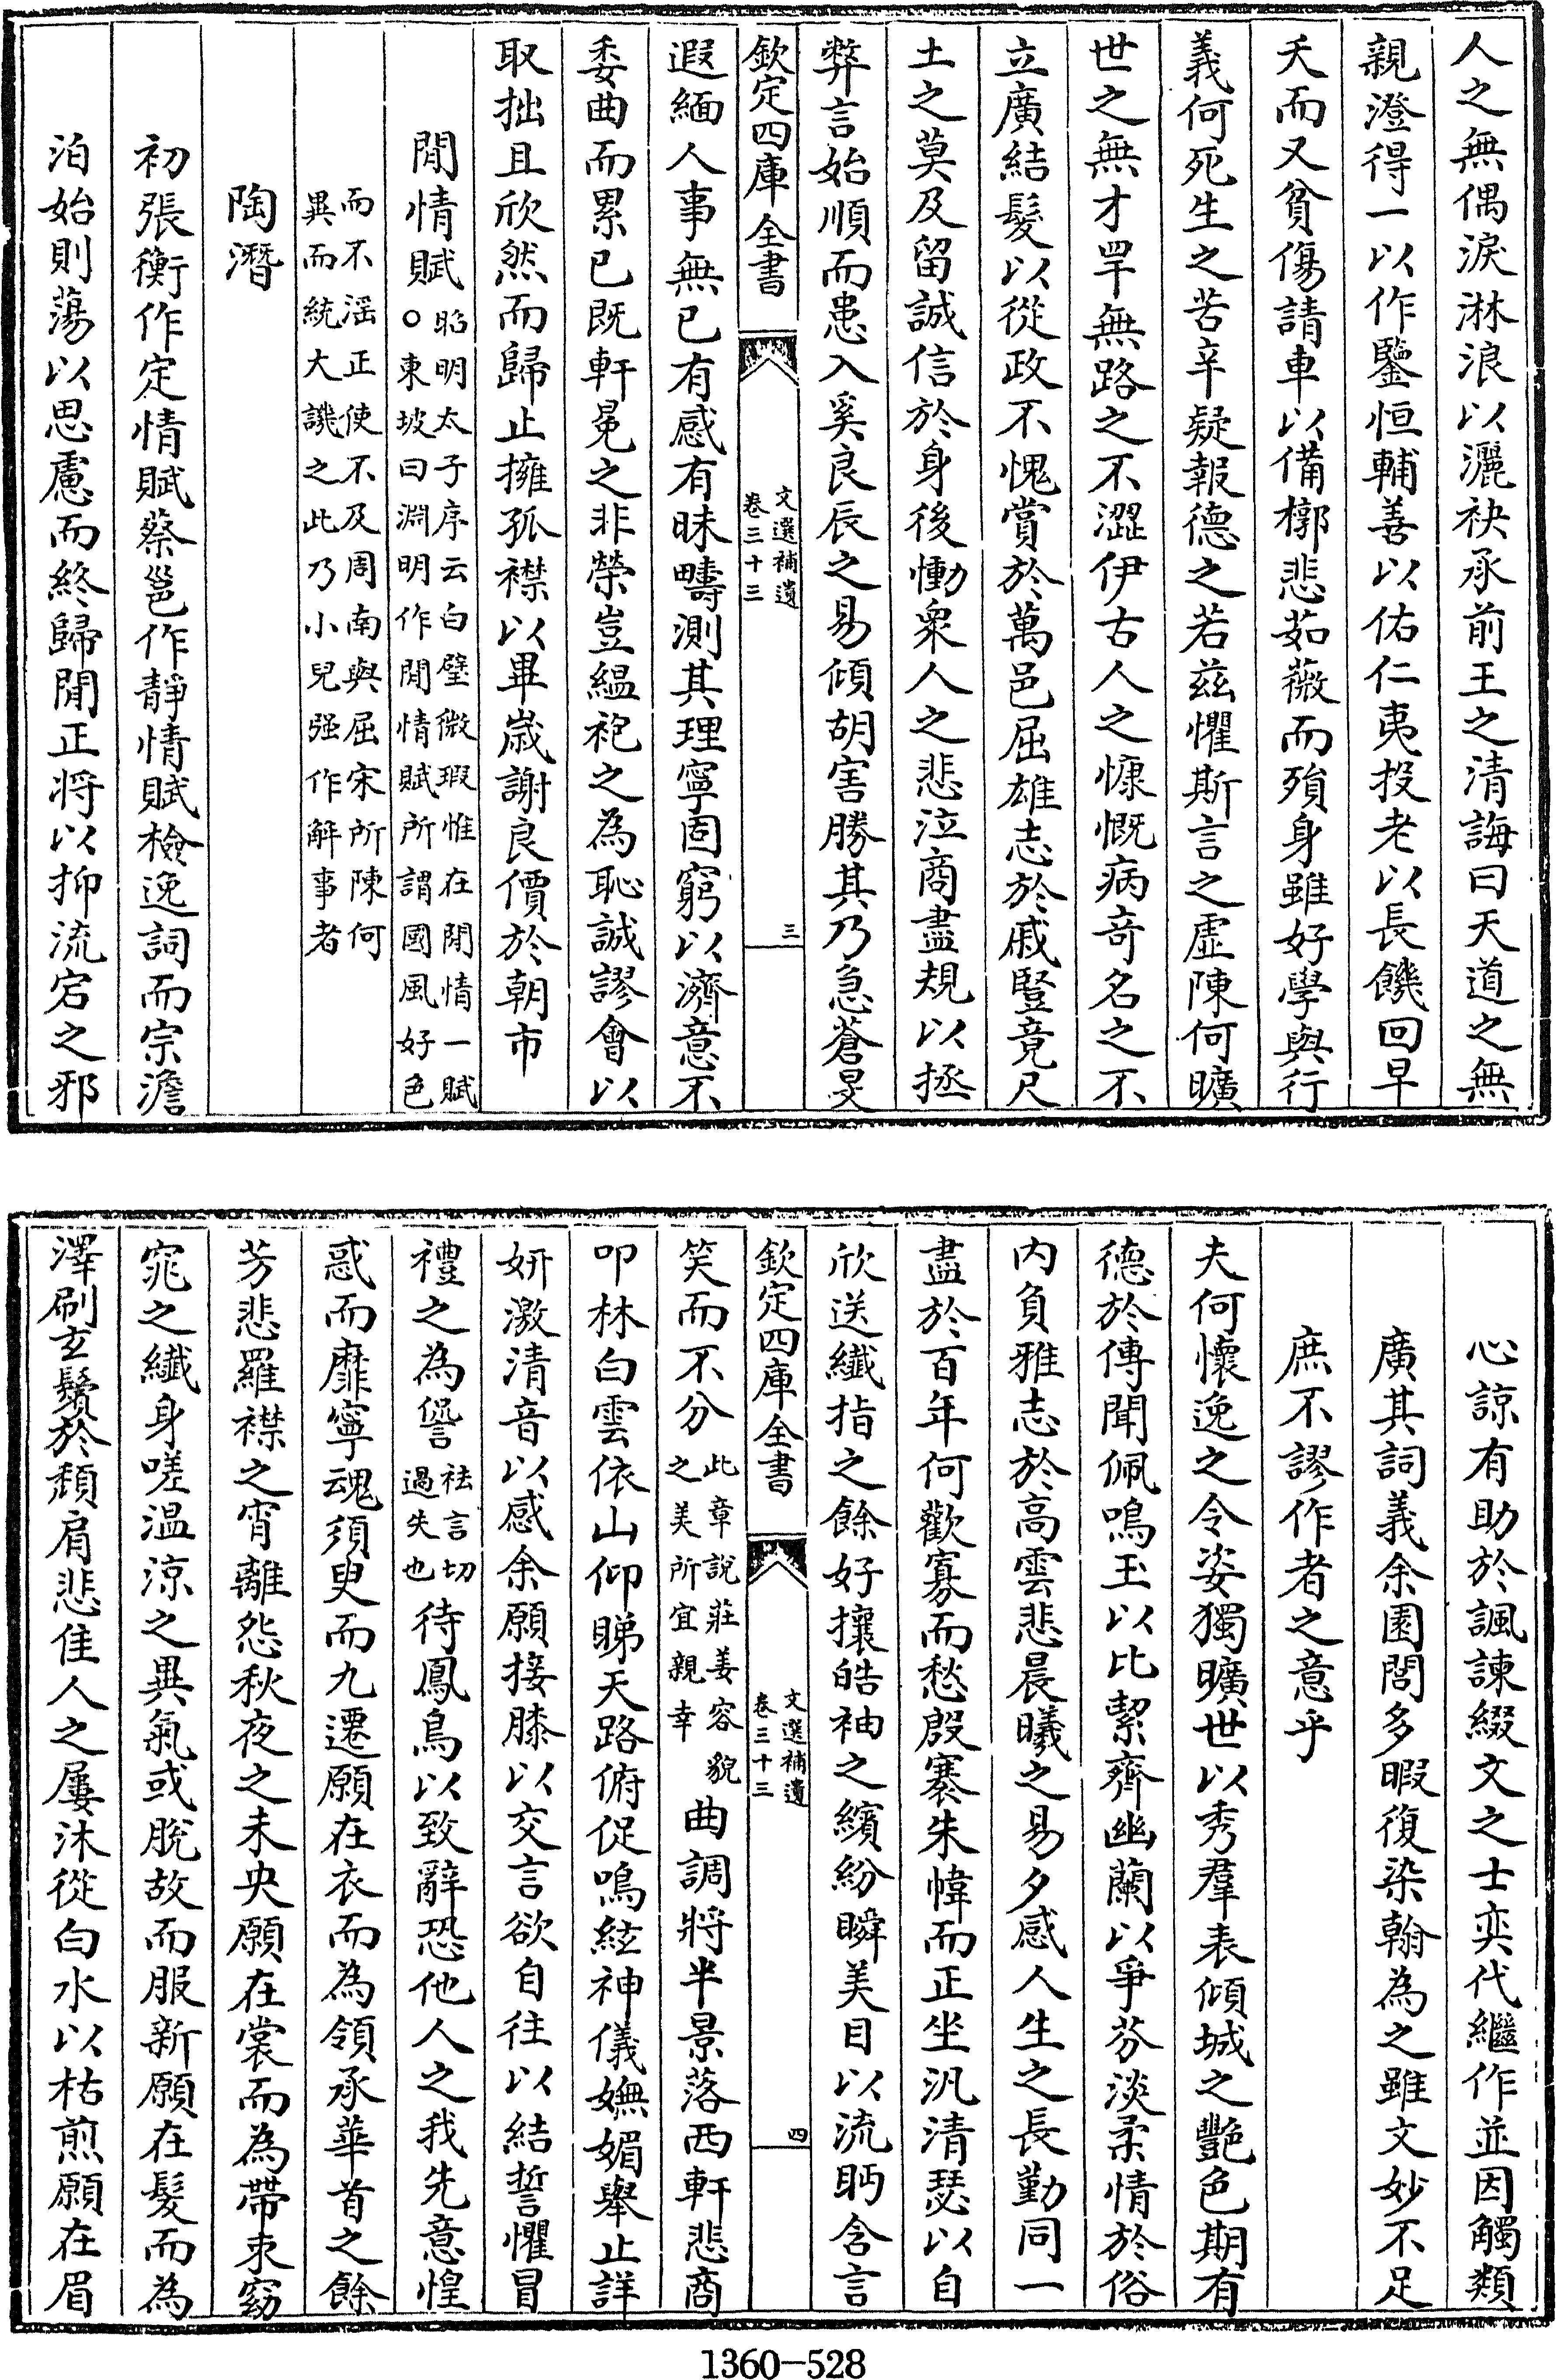 人之無偶淚淋浪以灑袂承前王之清誨曰天道之無
親澄得一以作鑒恒輔善以佑仁夷投老以長饑回早
夭而又貧傷請車以備槨悲茹薇而殞身雖好學與行
義何死生之苦辛疑報德之若茲懼斯言之虛陳何曠
世之無才罕無路之不澀伊古人之慷慨病奇名之不
立廣結髮以從政不愧賞於萬邑屈雄志於戚豎竟尺
土之莫及留誠信於身後慟衆人之悲泣商盡規以拯
弊言始順而患入奚良辰之易傾胡害勝其乃急蒼旻
欽定四庫全書 文選補遺 卷三十三 三
遐緬人事無已有感有昧疇測其理寧固窮以濟意不
委曲而累己既軒冕之非榮豈縕袍之為恥誠謬會以
取拙且欣然而歸止擁孤襟以畢歲謝良價於朝市
閒情賦昭明太子序云白璧微瑕惟在閒情一賦○東坡曰淵明作閒情賦所謂國風好色
而不淫正使不及周南與屈宋所陳何異而統大譏之此乃小兒强作解事者
陶潛
初張衡作定情賦蔡邕作靜情賦檢逸詞而宗澹
泊始則蕩以思慮而終歸閒正將以抑流宕之邪
心諒有助於諷諫綴文之士奕代繼作並因觸類
廣其詞義余園閭多暇復染翰為之雖文妙不足
庶不謬作者之意乎
夫何懷逸之令姿獨曠世以秀羣表傾城之艷色期有
德於傳聞佩鳴玉以比絜齊幽蘭以爭芬淡柔情於俗
内負雅志於高雲悲晨曦之易夕感人生之長勤同一
盡於百年何歡寡而愁殷褰朱幃而正坐汎清瑟以自
欣送纎指之餘好攘皓袖之繽紛瞬美目以流眄含言
欽定四庫全書 文選補遺 卷三十三 四
笑而不分此章說莊姜容貌之美所宜親幸曲調將半景落西軒悲商
叩林白雲依山仰睇天路俯促鳴絃神儀嫵媚舉止詳
妍激清音以感余願接膝以交言欲自往以結誓懼冒
禮之為諐祛言切過失也待鳳鳥以致辭恐他人之我先意惶
惑而靡寧魂須臾而九遷願在衣而為領承華首之餘
芳悲羅襟之宵離怨秋夜之未央願在裳而為帶束窈
窕之纎身嗟溫涼之異氣或脫故而服新願在髮而為
澤刷玄鬢於頹肩悲佳人之屢沐從白水以枯煎願在眉
1360-528